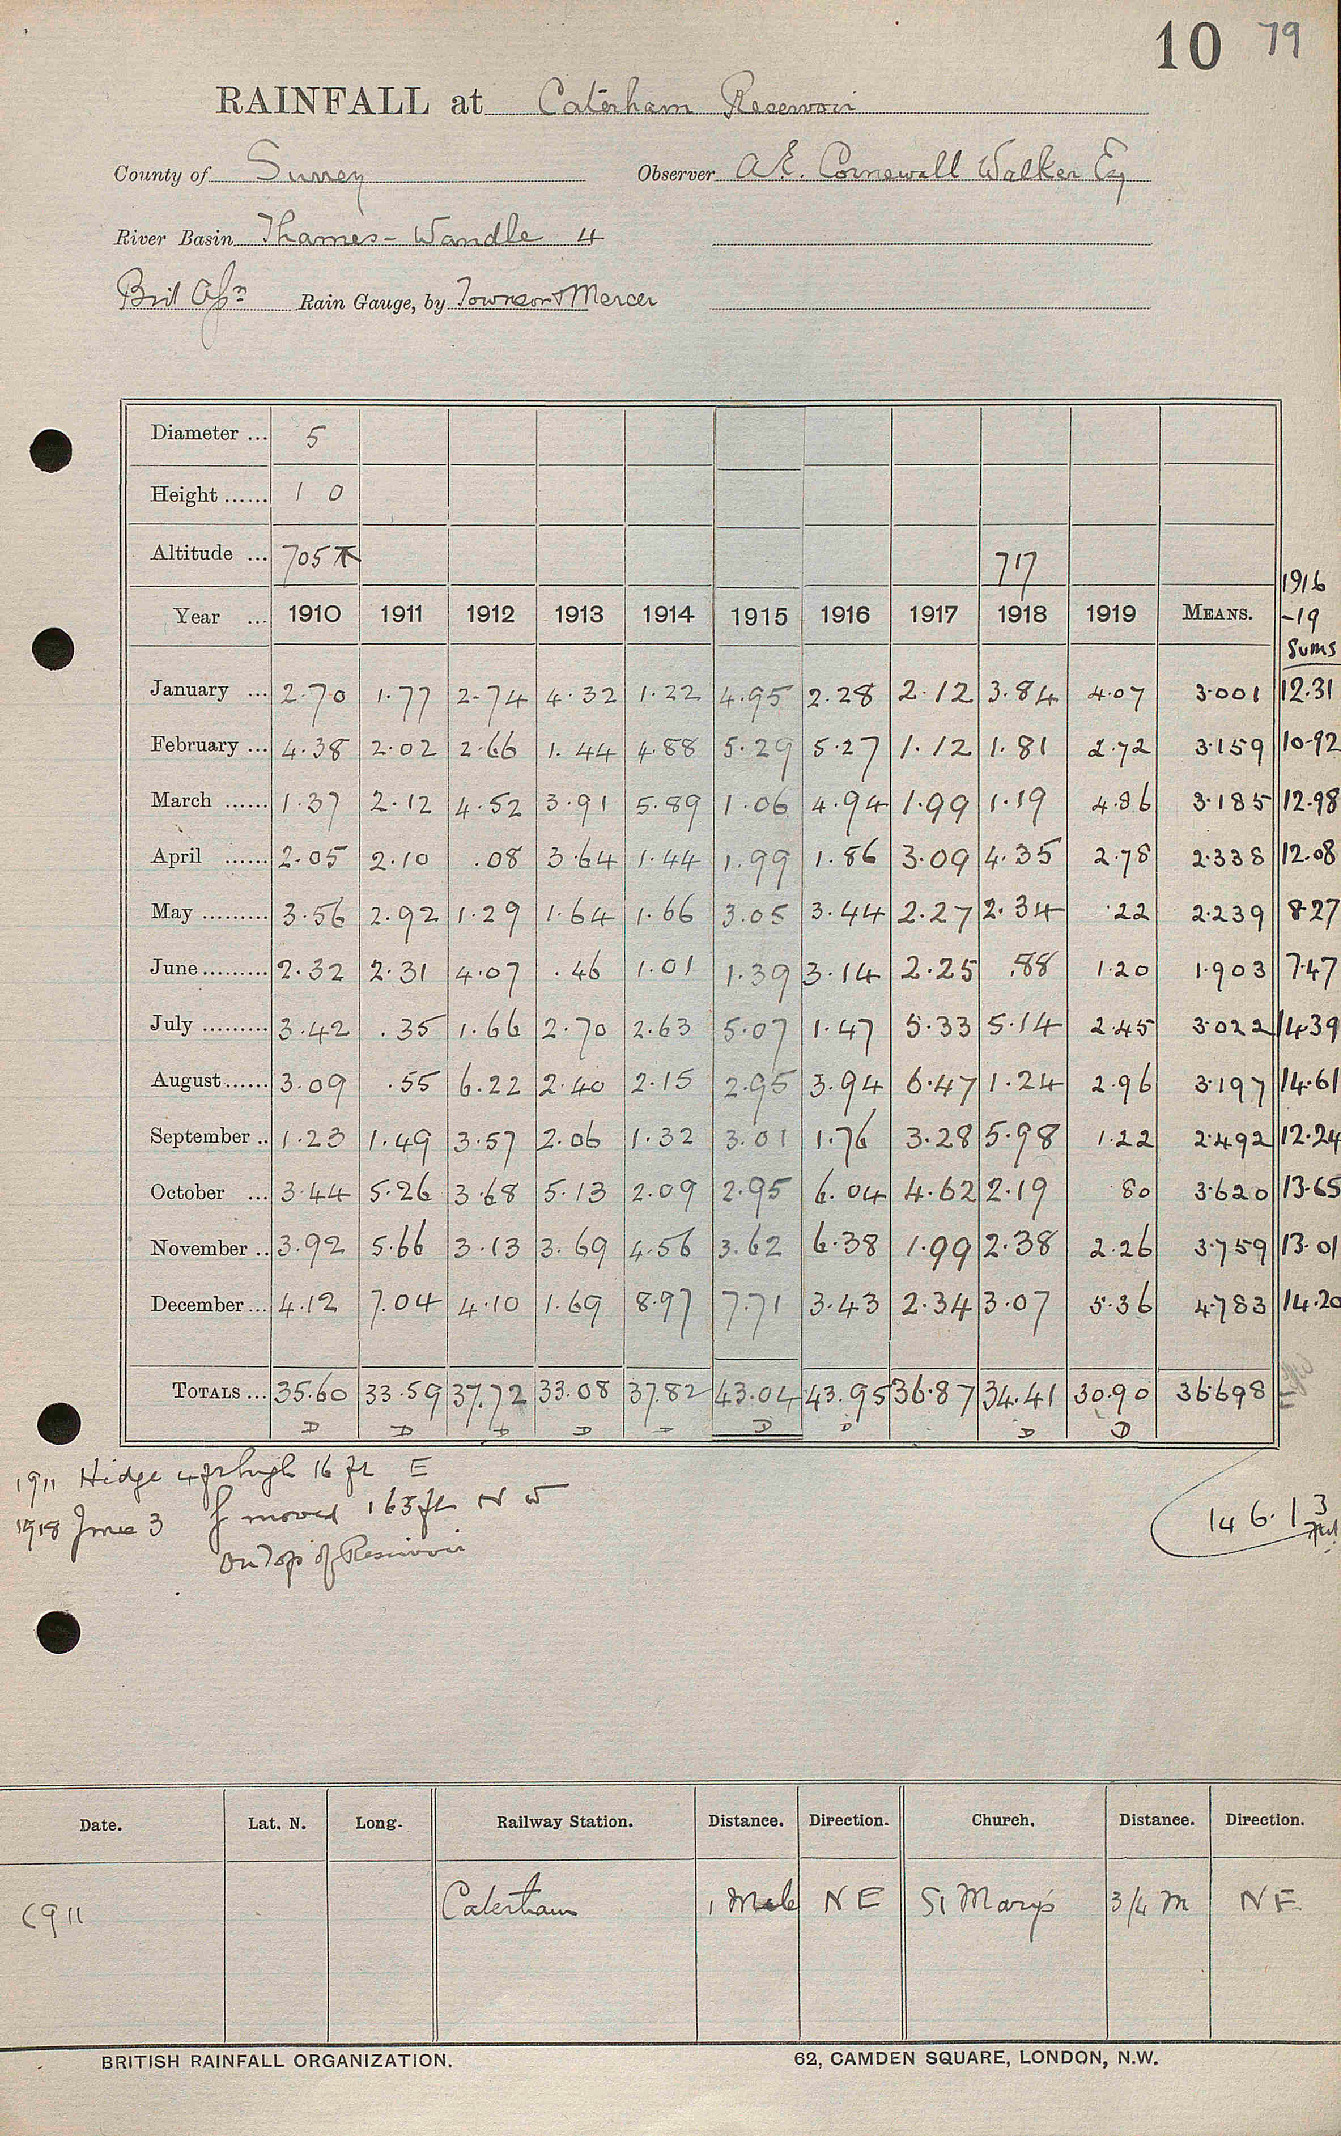 10 79
RAINFALL at Caterham Reservoir
County of Surrey Observer A.E. Cornewall Walker Esq
River Basin Thames - Wandle 4
Rain Gauge, by Townson & Mercer
Diameter ... 5
Height ...... 1 0
Altitude ... 705 717
1916
Year ... 1910 1911 1912 1913 1914 1915 1916 1917 1918 1919 MEANS. -19
Sums
January ... 2.70 1.77 2.74 4.32 1.22 4.95 2.28 2.12 3.84 4.07 3.001 12.31
February ... 4.38 2.02 2.66 1.44 4.88 5.29 5.27 1.12 1.81 2.72 3.159 10.92
March ...... 1.37 2.12 4.52 3.91 5.89 1.06 4.94 1.99 1.19 4.86 3.185 12.98
April ...... 2.05 2.10 .08 3.64 1.44 1.99 1.86 3.09 4.35 2.78 2.338 12.08
May ......... 3.56 2.92 1.29 1.64 1.66 3.05 3.44 2.27 2.34 .22 2.239 8.27
June ......... 2.32 2.31 4.07 .46 1.01 1.39 3.14 2.25 .88 1.20 1.903 7.47
July ......... 3.42 .35 1.66 2.70 2.63 5.07 1.47 5.33 5.14 2.45 3.022 14.39
August ...... 3.09 .55 6.22 2.40 2.15 2.95 3.94 6.47 1.24 2.96 3.197 14.61
September .. 1.23 1.49 3.57 2.06 1.32 3.01 1.76 3.28 5.98 1.22 2.492 12.24
October ... 3.44 5.26 3.68 5.13 2.09 2.95 6.04 4.62 2.19 80 3.620 13.65
November .. 3.92 5.66 3.13 3.69 4.56 3.62 6.38 1.99 2.38 2.26 3.759 13.01
December ... 4.12 7.04 4.10 1.69 8.97 7.71 3.43 2.34 3.07 5.36 4.783 14.20
TOTALS ... 35.60 33.59 37.72 33.08 37.82 43.04 43.95 36.87 34.41 30.90 36.698
D D D D D D D D
1911 Hidge 4 ft high 16 ft E
1918 June 3 moved 163 ft N W
On Top of Reservoir
146.13
Date. Lat. N. Long. Railway Station. Distance. Direction. Church. Distance. Direction.
1911 Caterham 1 Mile NE St Mary's 3/4 m NE
BRITISH RAINFALL ORGANIZATION. 62, CAMDEN SQUARE, LONDON, N.W.